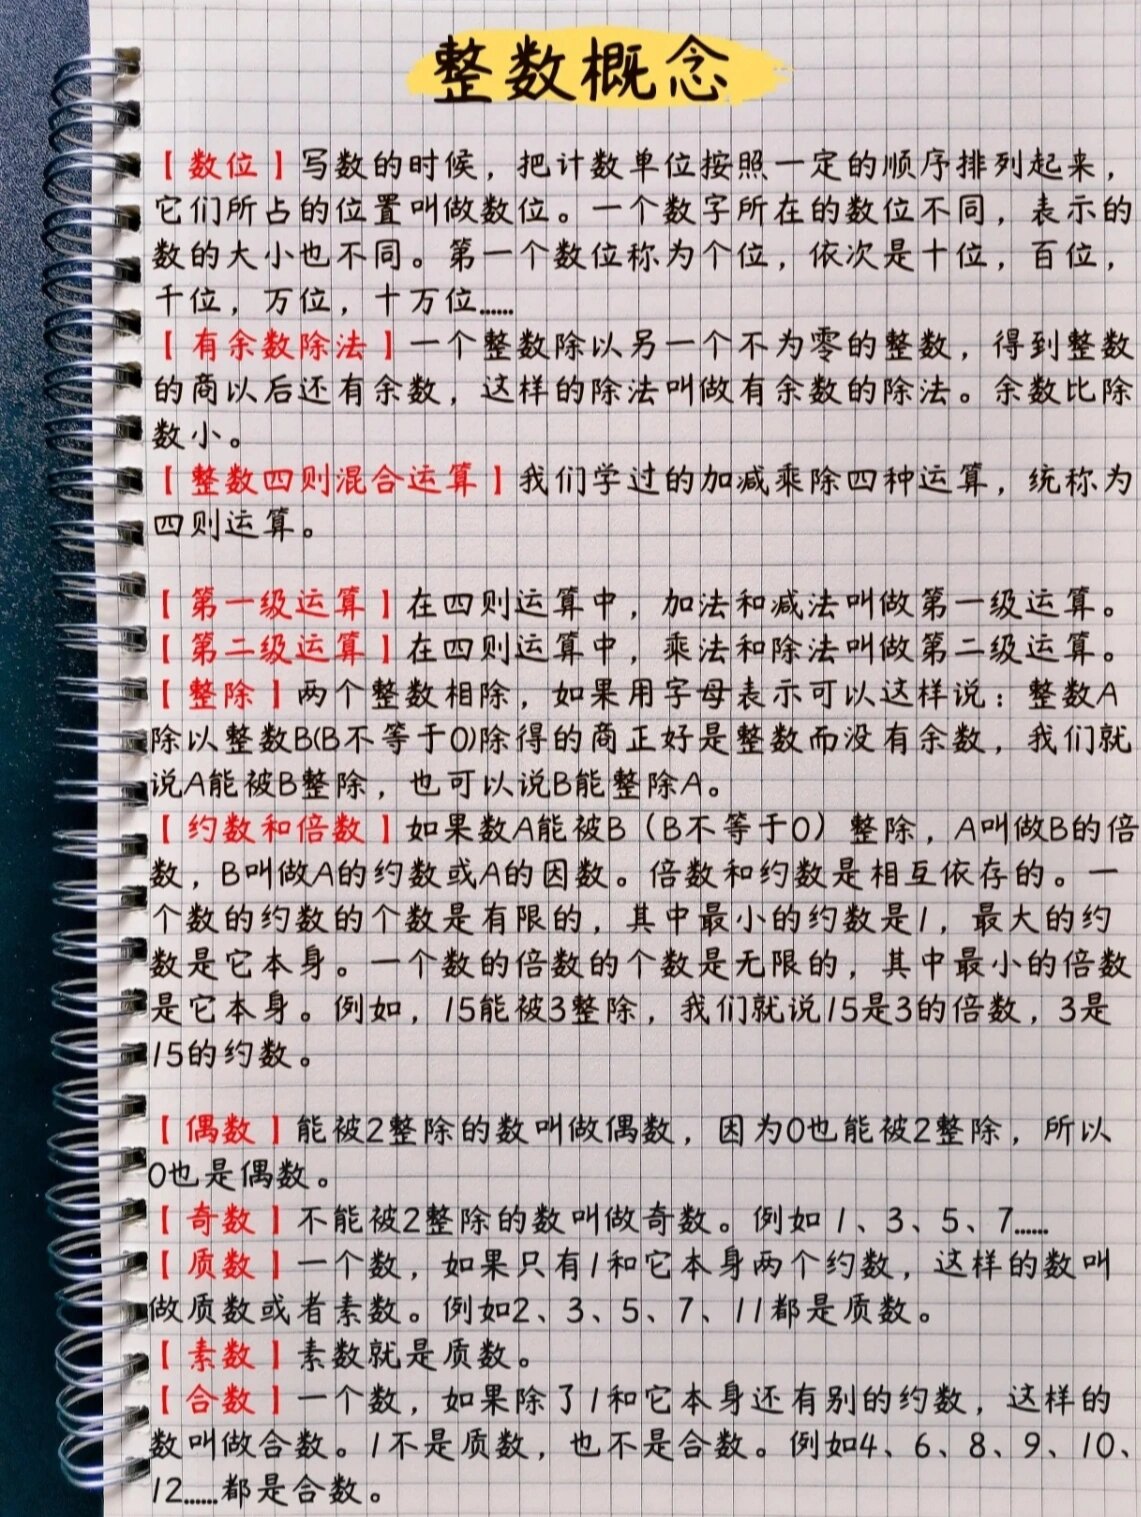 整数概念
【数位】写数的时候，把计数单位按照一定的顺序排列起来，
它们所占的位置叫做数位。一个数字所在的数位不同，表示的
数的大小也不同。第一个数位称为个位，依次是十位，百位，
千位，万位，十万位……
【有余数除法】一个整数除以另一个不为零的整数，得到整数
的商以后还有余数，这样的除法叫做有余数的除法。余数比除
数小。
【整数四则混合运算】我们学过的加减乘除四种运算，统称为
四则运算。
【第一级运算】在四则运算中，加法和减法叫做第一级运算。
【第二级运算】在四则运算中，乘法和除法叫做第二级运算。
【整除】两个整数相除，如果用字母表示可以这样说：整数A
除以整数B(B不等于0)除得的商正好是整数而没有余数，我们就
说A能被B整除，也可以说B能整除A。
【约数和倍数】如果数A能被B（B不等于0）整除，A叫做B的倍
数，B叫做A的约数或A的因数。倍数和约数是相互依存的。一
个数的约数的个数是有限的，其中最小的约数是1，最大的约
数是它本身。一个数的倍数的个数是无限的，其中最小的倍数
是它本身。例如，15能被3整除，我们就说15是3的倍数，3是
15的约数。
【偶数】能被2整除的数叫做偶数，因为0也能被2整除，所以
0也是偶数。
【奇数】不能被2整除的数叫做奇数。例如1、3、5、7……
【质数】一个数，如果只有1和它本身两个约数，这样的数叫
做质数或者素数。例如2、3、5、7、11都是质数。
【素数】素数就是质数。
【合数】一个数，如果除了1和它本身还有别的约数，这样的
数叫做合数。1不是质数，也不是合数。例如4、6、8、9、10、
12……都是合数。